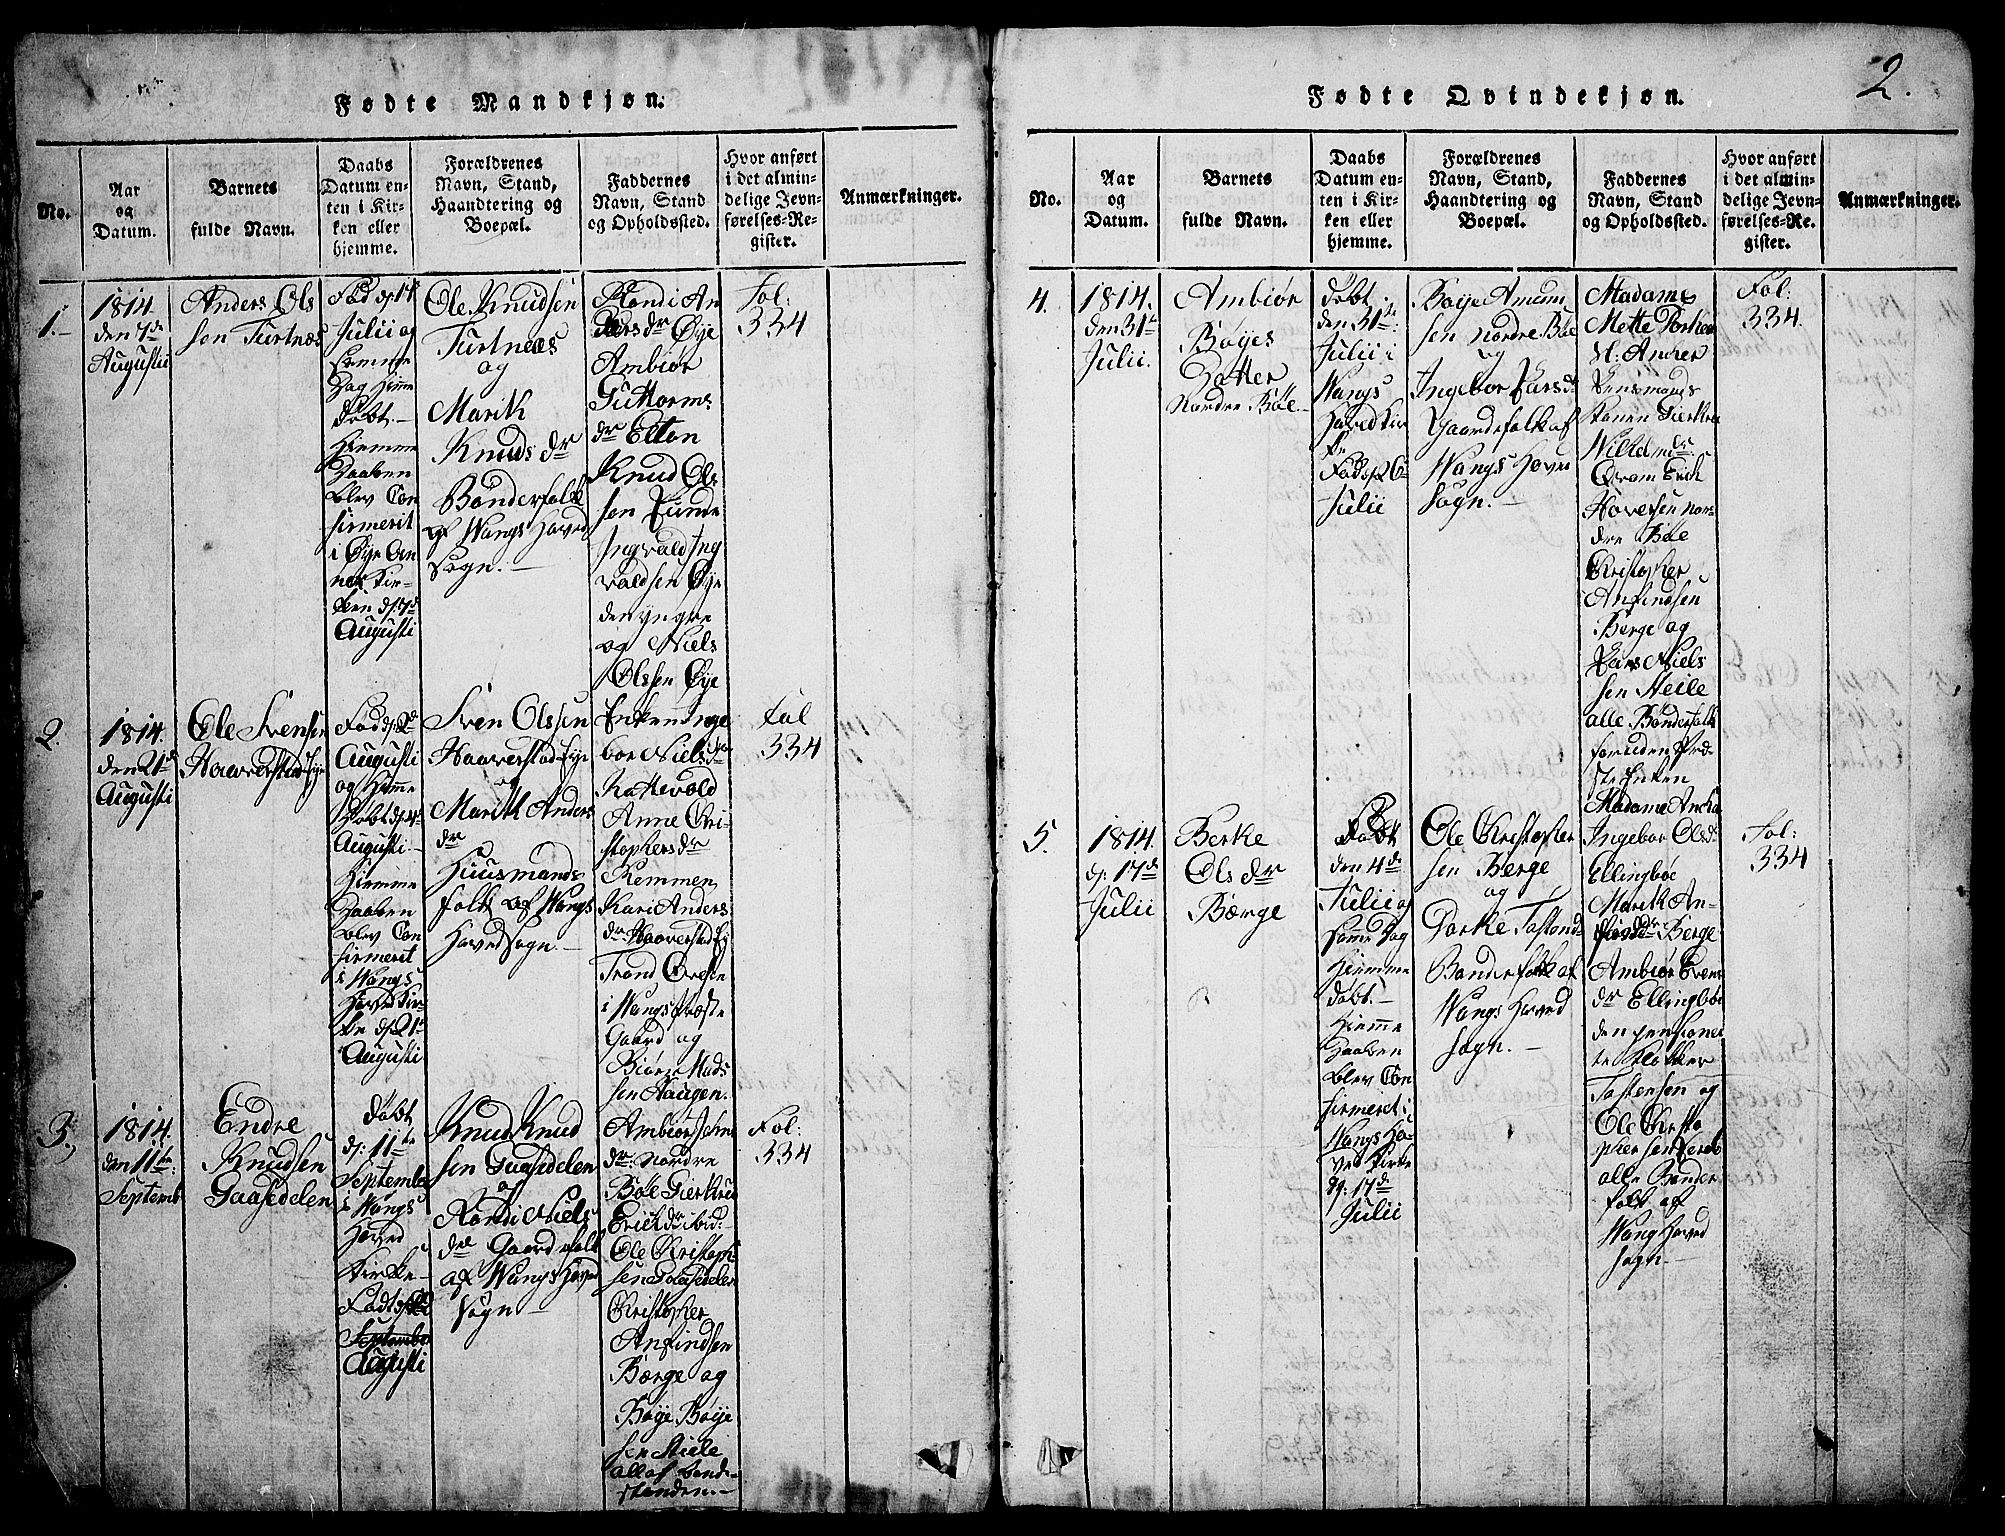 2.
Fødte Mandkjøn.
No.
Aar
og
Datum.
Barnets
fulde Navn.
Daabs
Datum en-
ten i Kir-
ken eller
hjemme.
Forældrenes
Navn, Stand,
Haandtering og
Boepæl.
Faddernes
Navn, Stand
og Opholdssted.
Hvor anført
i det almin-
delige Jevn-
førelses-Re-
gister.
Anmærkninger.
1.
1814.
den 7de
Augusti
Anders Ols
sen Turtnæs
Julii og
samme
Dag hiemme
døbt.
Hiemme
Daaben
blev Con
firmerit
i Øye An
nex Kir-
ken d: 7de
Augusti
Ole Knudsen
Turtnæs
og
Marith
Knuds dr
Bønderfolk
af Wangs Hoved
Sogn.
Randi An
ders dr Øye
Ambiør
Guttorms
dr Elton
Knud Ols
sen
Ingvald Ing
valdsen Øye
den yngre
og Niels
Olssen Øye
Fol:
334
2.
1814.
den 21de
Augusti
Ole Svensen
Haaverstad-eye
Augusti
og hiemme
døbt
Augusti.
Hiemme
Daaben
blev Con
firmerit
i Wangs
Hoved Kir
ke d: 21de
Augusti
Sven Olssen
Haaverstad-eye
og
Marith Anders
dr
Huusmands
folk af Wangs
Hoved Sogn.
Enken Inge
bor Niels dr
Kattevold
Anne Cri-
stophers dr
Kemmen
Kari Anders
dr Haaverstad-ey
Trond
i Wangs Præste
Gaard og
Biørn Mads
sen Haugen.
Fol
334
3.
1814.
den 11te
Septemb
Endre
Knudsen
Gaasedelen
døbt
d: 11te
Septemb
i Wangs
Hoved
Kirke
Født
September
Augusti
Knud Knud
sen Gaasedelen
og
Randi Niels
dr Gaardefolk
af Wangs Hoved
Sogn
Ambiør
dr Nordre
Bøe Giertrud
Erich dr ibid:
Ole Kristoph
sen Gaasedelen
Christopher
Anfindsen
Børge og
Boye Boye
sen Heile
all af bonde-
standen.
Fol:
334
Fødte Qvindekjøn.
No.
Aar
og
Datum.
Barnets
fulde Navn.
Daabs
Datum en-
ten i Kir-
ken eller
hjemme.
Forældrenes
Navn, Stand,
Haandtering og
Boepæl.
Faddernes
Navn, Stand
og Opholdssted.
Hvor anført
i det almin-
delige Jevn-
førelses-Re-
gister.
Anmærkninger.
4.
1814.
den 31te
Julii.
Ambiør
Bøyes
Datter
Nordre Bøe.
døbt
den 31te
Julii i
Wangs
Hoved Kir
ke
Fød
Julii
Boye Amund
sen Nordre Bøe
og
Ingebor Lars dr
Gaardefolk af
Wangs Hoved
Sogn.
Madame
Mette
Lensmands
Konen Giertrud
dr
Qvam Erich
Haversen Nor-
dre Bøe
Christopher
Anfindsen
Berge og
Lars Niels
sen Heile
alle Bønderfolk
foruden Præ-
ste Enken
Madame Ancher
Fol:
334
5.
1814.
d: 17de
Julii
Berke
Ols dr
Børge
Født
den 4de
Julii og
samme Dag
hiemme
døbt.
Hiemme
Daaben
blev Con
firmeret i
Wangs Ho-
ved Kirke
d: 17de
Julii
Ole Christopher
sen Berge
og
Dorke Tostens dr
Bønderfolk af
Wangs Hoved
Sogn.
Ingebor Ols dr
Ellingbøe
Marith An-
dr Berge
Ambiør Evens
dr Ellingbøe
den pensioner
te Klokker
Tostensen og
Ole Christo
phersen
alle Bønder
folk af
Wang Hoved
Sogn.
Fol:
334